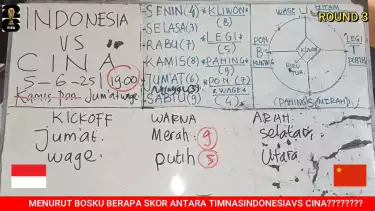 INDONESIA
VS
CINA
5-6-25
19.00
Kamis Pon Jum'at wage
SENIN (4)
SELASA (3)
RABU (7)
KAMIS (8)
JUM'AT (6)
SABTU (9)
*KLIWON*
(8)
*LEGI*
(5)
*PAHING*
(9)
*PON (7)
*WAGE*
(4)
WAGE
HITAM
PON
B
KUNING
KLIWON
LEGI
T
PUTIH
(PAHING)
MERAH
ROUND 3
KICKOFF
jum'at.
wage.
WARNA
Merah. 9
putih 5
ARAH.
selatan.
Utara
MENURUT BOSKU BERAPA SKOR ANTARA TIMNASINDONESIAVS CINA????????